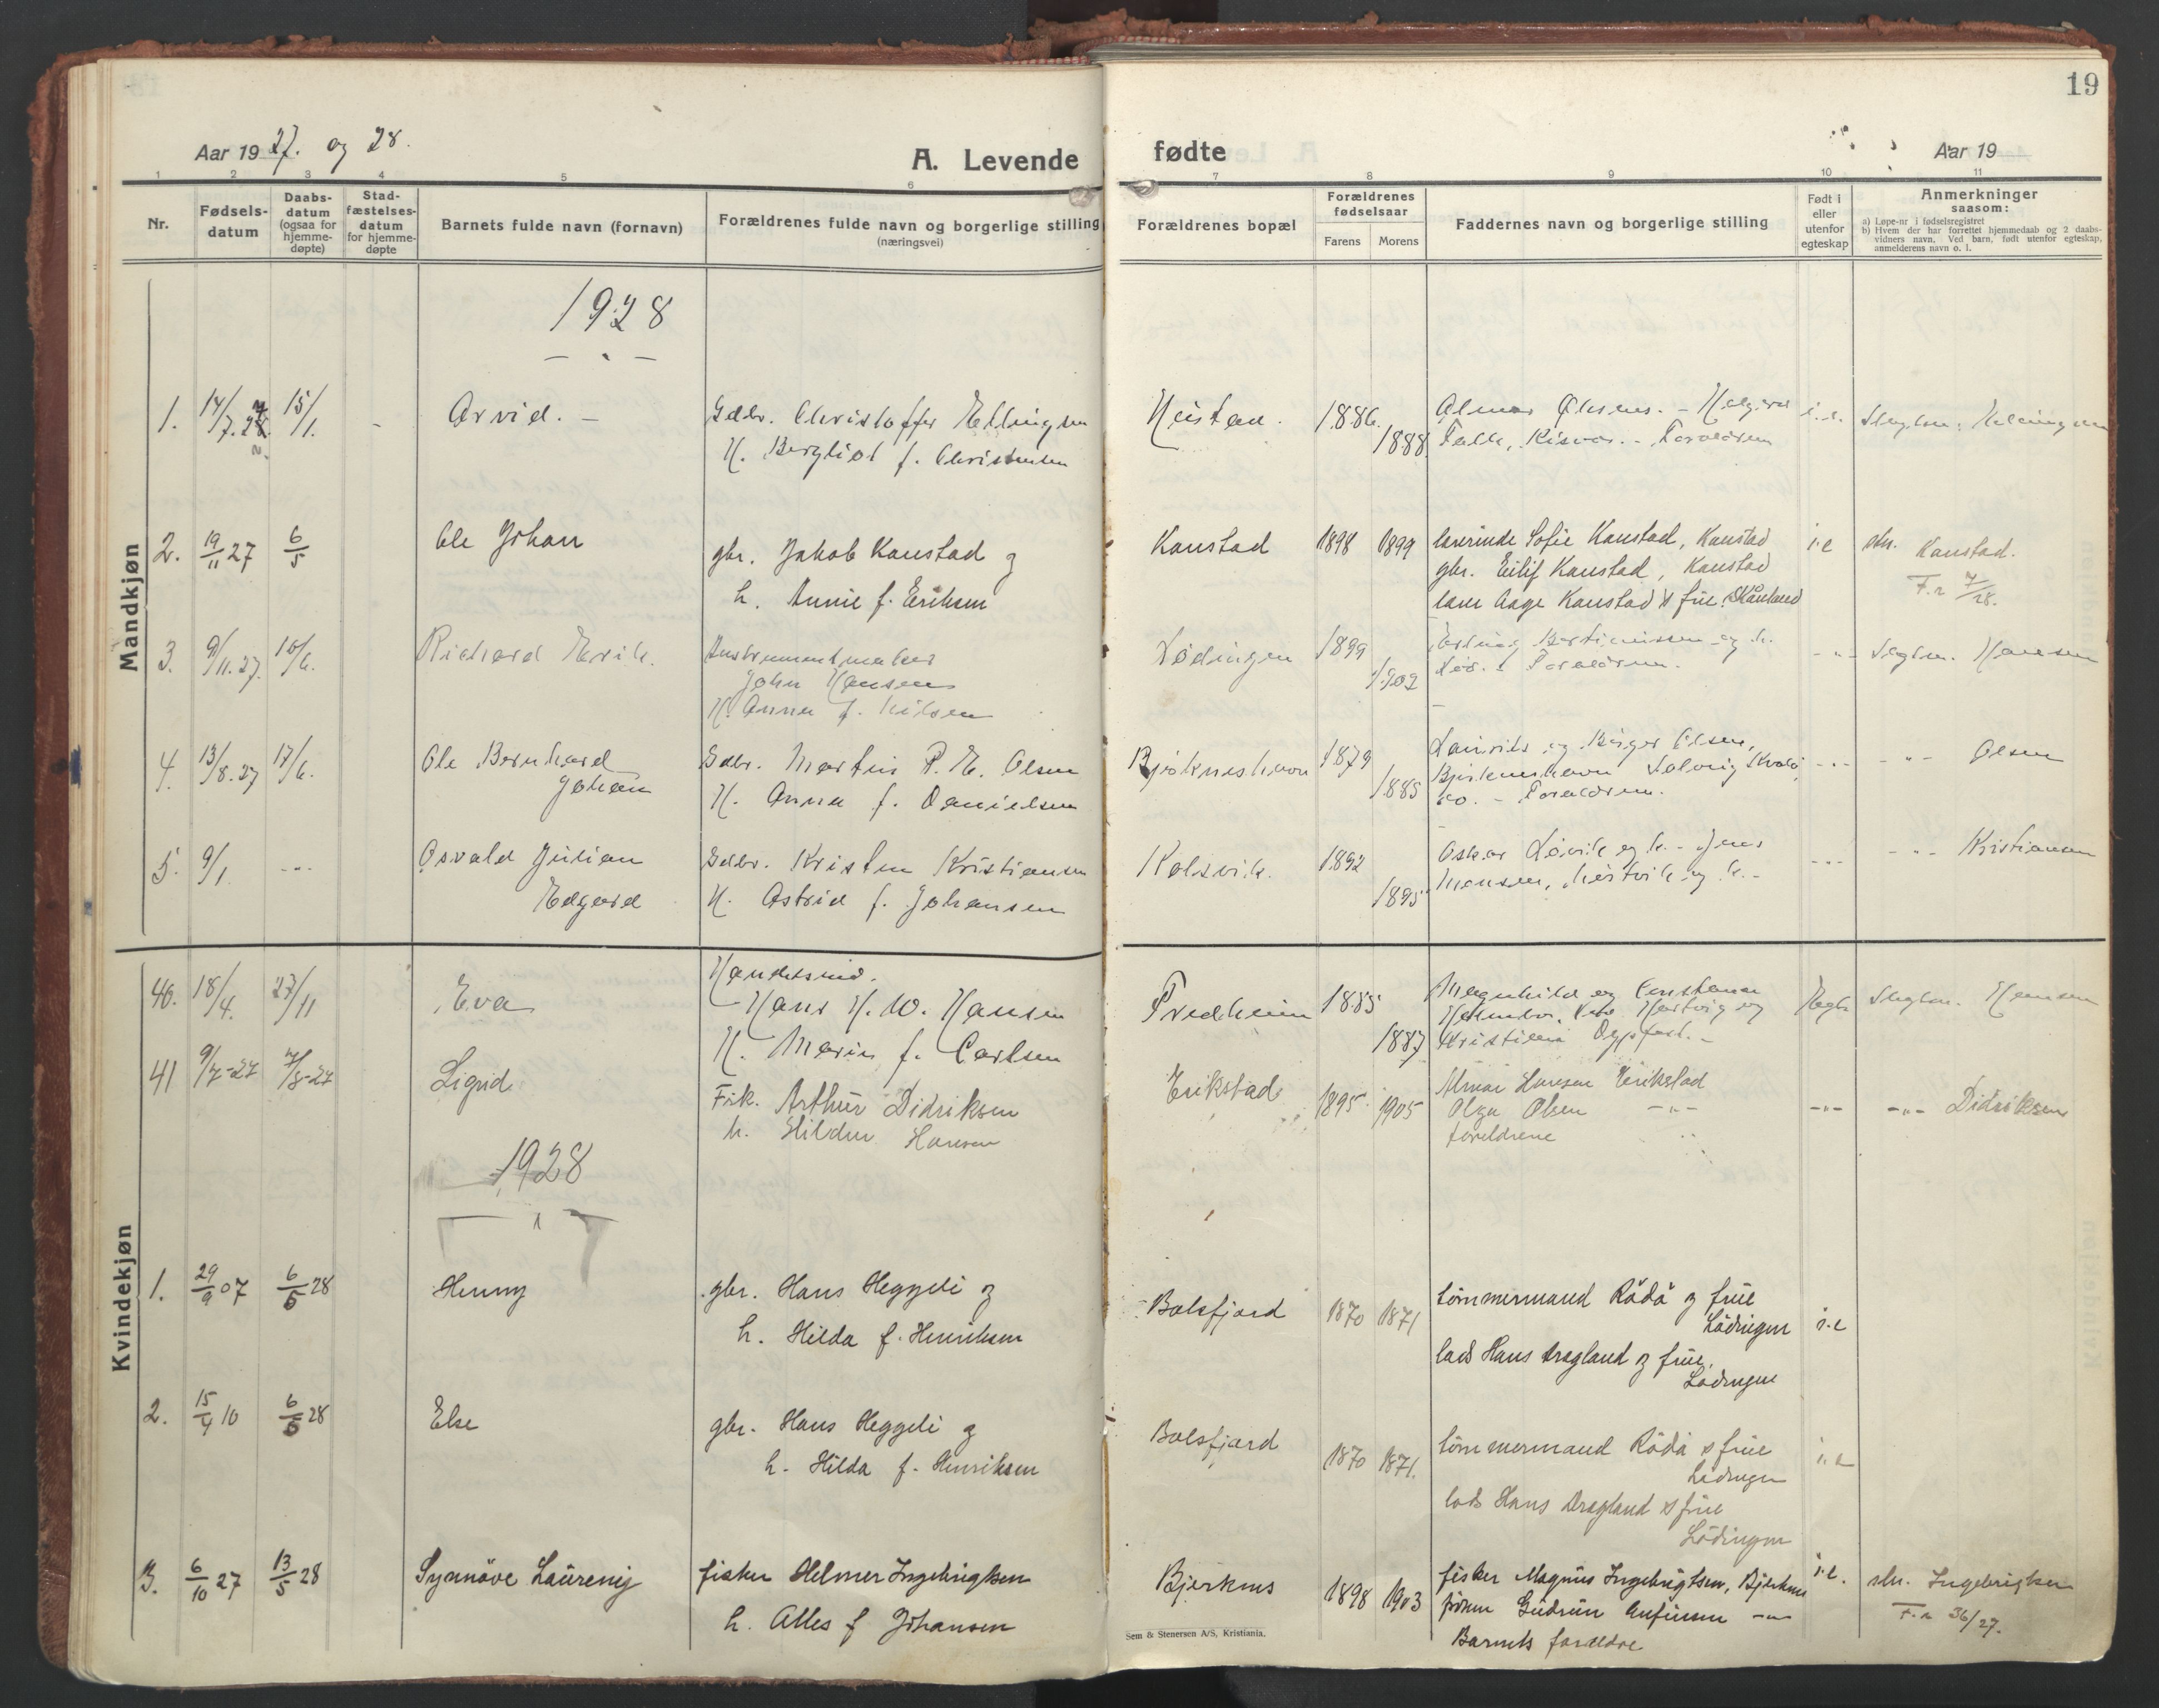 19
Aar 1927. og 28.
A. Levende fødte
Aar 19
1 2 3 4 5 6 7 8 9 10 11
Nr.
Fødsels-
datum
Daabs-
datum
(ogsaa for
hjemme-
døpte)
Stad-
fæstelses-
datum
for hjemme-
døpte
Barnets fulde navn (fornavn)
Forældrenes fulde navn og borgerlige stilling
(næringsvei)
Forældrenes bopæl
Forældrenes
fødselsaar
Farens Morens
Faddernes navn og borgerlige stilling
Født i
eller
utenfor
egteskap
Anmerkninger
saasom:
a) Løpe-nr i fødselsregistret
b) Hvem der har forrettet hjemmedaab og 2 daabs-
vidners navn. Ved barn, født utenfor egteskap,
anmelderens navn o. l.
Mandkjøn
1928
1. 15/1. - Arvid. -
Gdbr. Christoffer Ellingsen
H. Bergliot f. Christensen
1886. 1888
Forældrene
i.e.
2. 19/11 27 6/5 Ole Johan
gbr. Jakob Kanstad og
h. Annie f. Eriksen
Kanstad 1898 1899
lærerinde Sofie Kanstad, Kanstad
gbr. Eilif Kanstad, Kanstad
lærer Aage Kanstad & frue,
i.e
Kanstad.
F.r 7/28.
3. 9/11.27. 10/6. Richard Erik.
Instrumentmaker
John Hansen
H. Anna f. Nilsen
Lødingen 1899 1902
Forældrene.
-"- Hansen
4. 13/8.27 17/6. Ole Bernhard
Johan
Gdbr. Martin P. E. Olsen
H. Anna f. Danielsen
1879 1885
Laurits og Birger Olsen,
Forældrene.
-"- -"- Olsen
5. 9/1. -"- Osvald Julian
Edgard
Gdbr. Kristen Kristiansen
H. Astrid f. Johansen
Kolsvik. 1892 1895
Oskar Løvik og h. - Jens
-"- -"- Kristiansen
Kvindekjøn
40. 18/4. 27/11 Eva
Hans H. W. Hansen
H. Marie f. Carlsen
Fredheim 1885 1887
Magnhild og Constance
Hansen
41 9/7-27 7/8-27 Sigrid
Fisk. Arthur Didriksen
h. Hildur Hansen
Erikstad 1895 1905
Almar Hansen Erikstad
Olga Olsen -"-
foreldrene
-"- -"- Didriksen
1928
1. 29/9 07 6/5 28 Henny
gbr. Hans Heggeli og
h. Hilda f. Henriksen
Bolsfjord 1870 1871
tømmermand Rödå og frue
Lödingen
lods Hans Dragland og frue,
Lödingen
i.e
2. 15/4 10 6/5 28 Else
gbr. Hans Heggeli og
h. Hilda f. Henriksen
Bolsfjord 1870 1871.
tømmermand Rödå & frue
Lödingen
lods Hans Dragland & frue
Lödingen
i.e
3. 6/10 27 13/5 28 Synnöve Laurenij
fisker Helmer Ingebrigtsen
h. Alles f. Johansen
Bjerknes 1898 1903
fisker Magnus Ingebrigtsen, Bjerknes
frøken Gudrun Anfinsen -"-
Barnets forældre
i.e.
Ingebrigtsen
F.r 36/27.
Sem & Stenersen A/S, Kristiania.